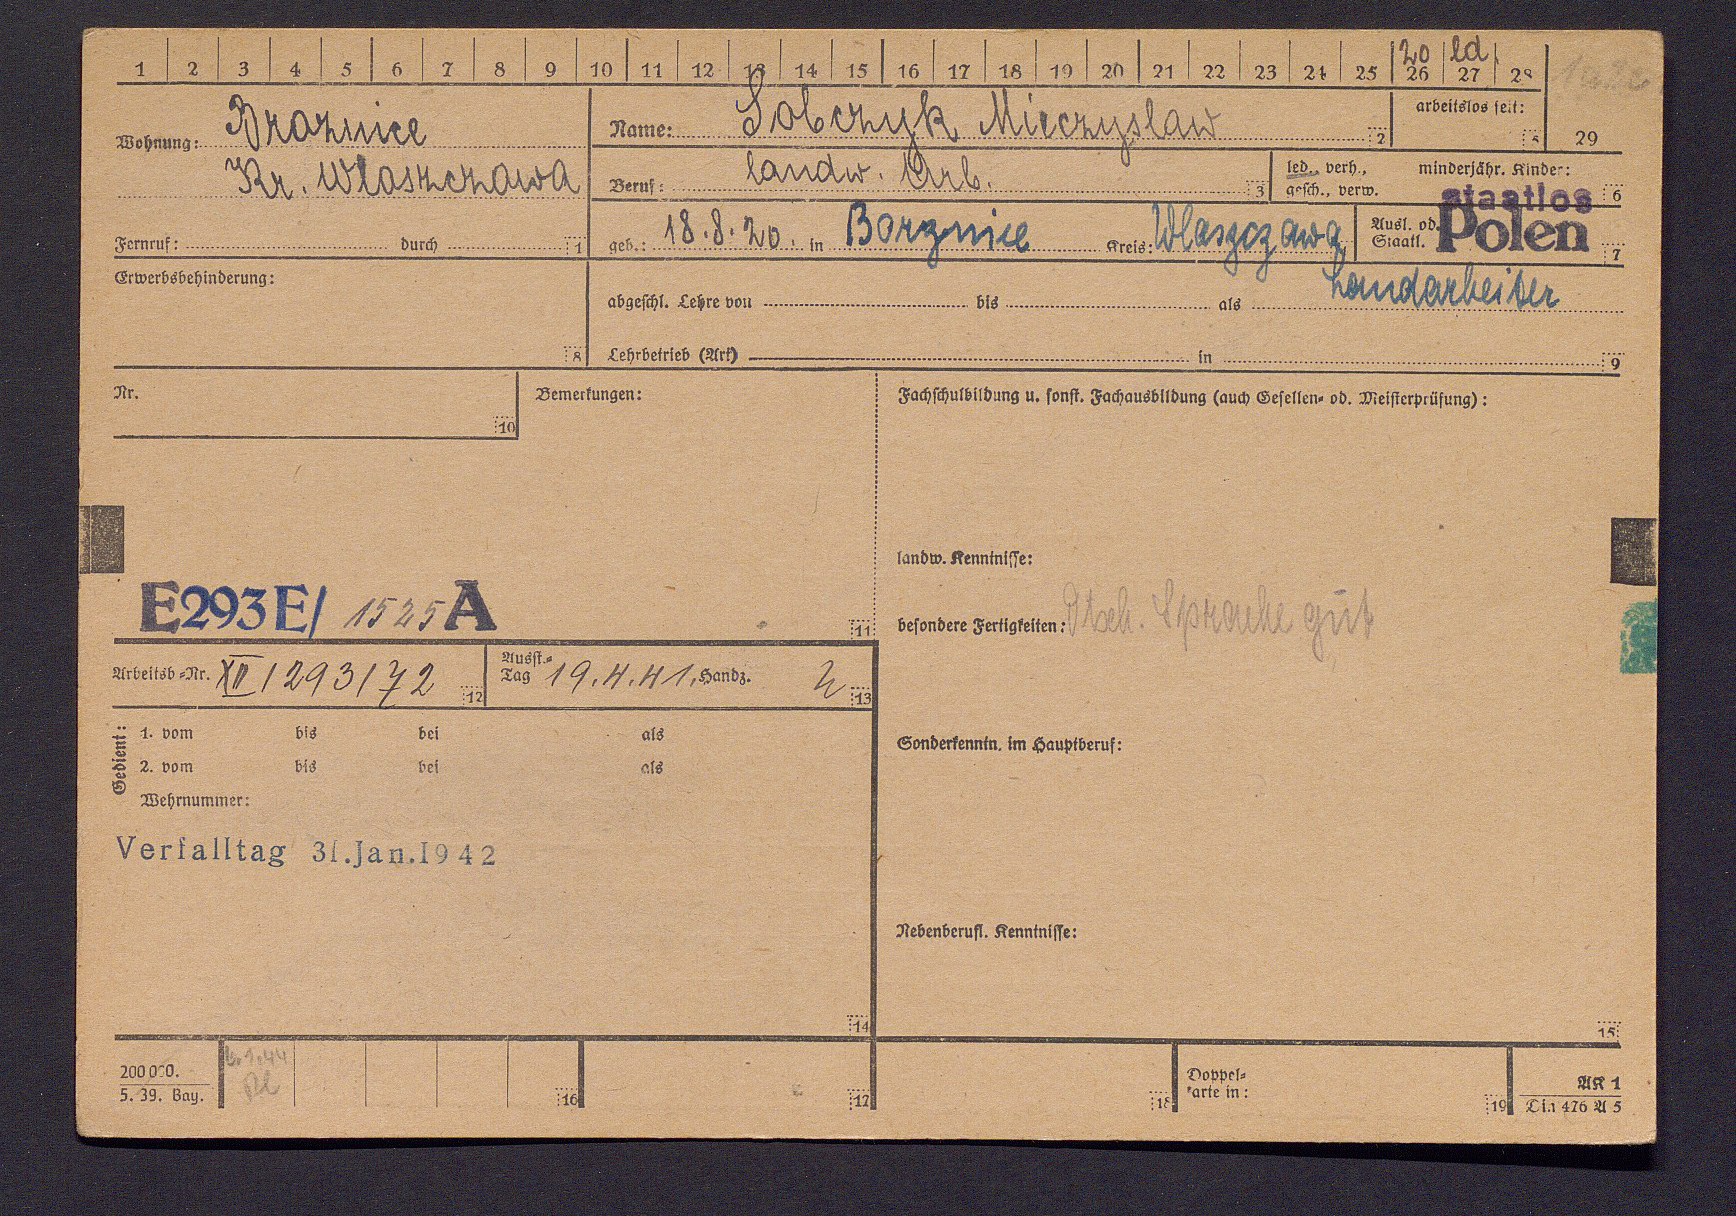 20 ld.
1 2 3 4 5 6 7 8 9 10 11 12 13 14 15 16 17 18 19 20 21 22 23 24 25 26 27 28
Wohnung: Broznice
Kr. Wloszczawa
Fernruf: durch 1
Name: Sobczyk Mieczyslaw 2
arbeitslos seit: 5
29
Beruf: landw. Arb. 3
led., verh.,
gesch., verw.
minderjähr. Kinder: 6
geb.: 18.8.20. in Borznice Kreis: Wlaszczawa
Ausl. od.
Staatl.
staatlos
Polen 7
Erwerbsbehinderung: 8
Landarbeiter
abgeschl. Lehre von bis als
Lehrbetrieb (Art) in 9
Nr. 10
Bemerkungen:
Fachschulbildung u. sonst. Fachausbildung (auch Gesellen- od. Meisterprüfung):
landw. Kenntnisse:
E293E/ 1525 A
11
besondere Fertigkeiten: Dtsch. Sprache gut
Arbeitsb.-Nr. XII/293/72 12
Ausst.-
Tag 19.4.41. Handz. 13
Gedient:
1. vom bis bei als
2. vom bis bei als
Wehrnummer:
Sonderkenntn. im Hauptberuf:
Verfalltag 31.Jan.1942
Nebenberufl. Kenntnisse:
14
15
200000.
5. 39. Bay.
16
17
18
Doppel-
karte in:
19
AK 1
Din 476 A 5